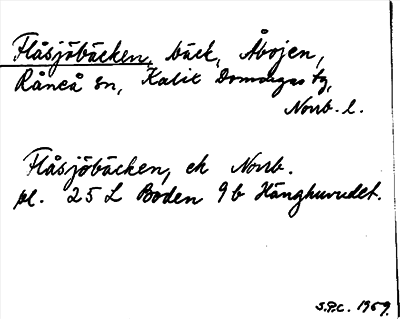 Flåsjöbäcken, bäck, Åbojen,
Råneå sn, Kalix Domsagas tg,
Norrb. l.
Flåsjöbäcken, ek Norrb.
pl. 25 L Boden 9b Hänghuvudet.
S.P.C. 1969.